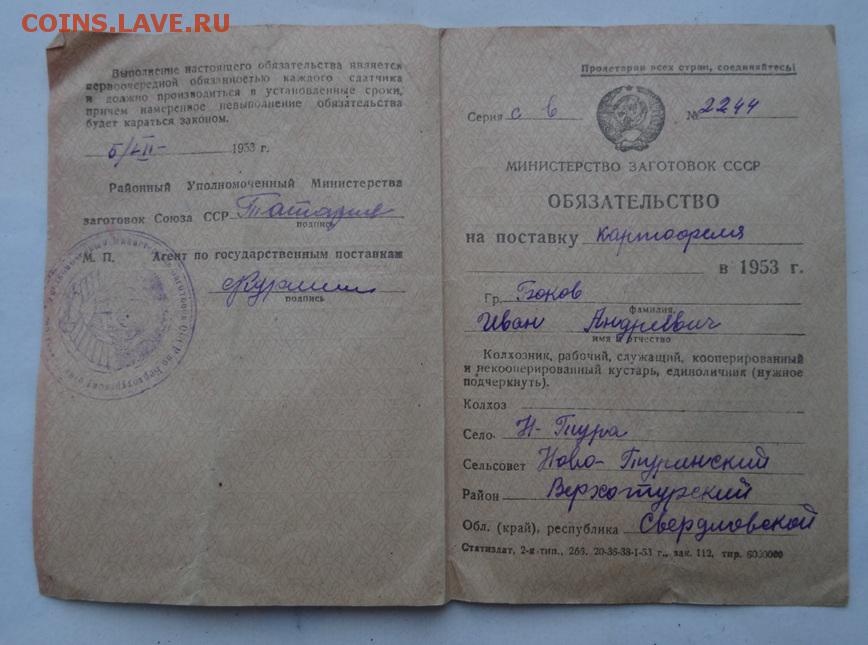 COINS.LAVE.RU
Выполнение настоящего обязательства является
первоочередной обязанностью каждого сдатчика
и должно производиться в установленные сроки,
причем намеренное невыполнение обязательства
будет караться законом.
1953 г.
Районный Уполномоченный Министерства
заготовок Союза ССР
подпись
М. П. Агент по государственным поставкам
подпись
Пролетарии всех стран, соединяйтесь!
Серия с в № 2244
МИНИСТЕРСТВО ЗАГОТОВОК СССР
ОБЯЗАТЕЛЬСТВО
на поставку картофеля
в 1953 г.
Гр. Боков
фамилия,
Иван Андреевич
имя и отчество
Колхозник, рабочий, служащий, кооперированный
и некооперированный кустарь, единоличник (нужное
подчеркнуть).
Колхоз
Село Н-Тура
Сельсовет Ново-Туринский
Район Верхотурский
Обл. (край), республика Свердловской
Статиздат, 2-я тип., зак. 112, тир.